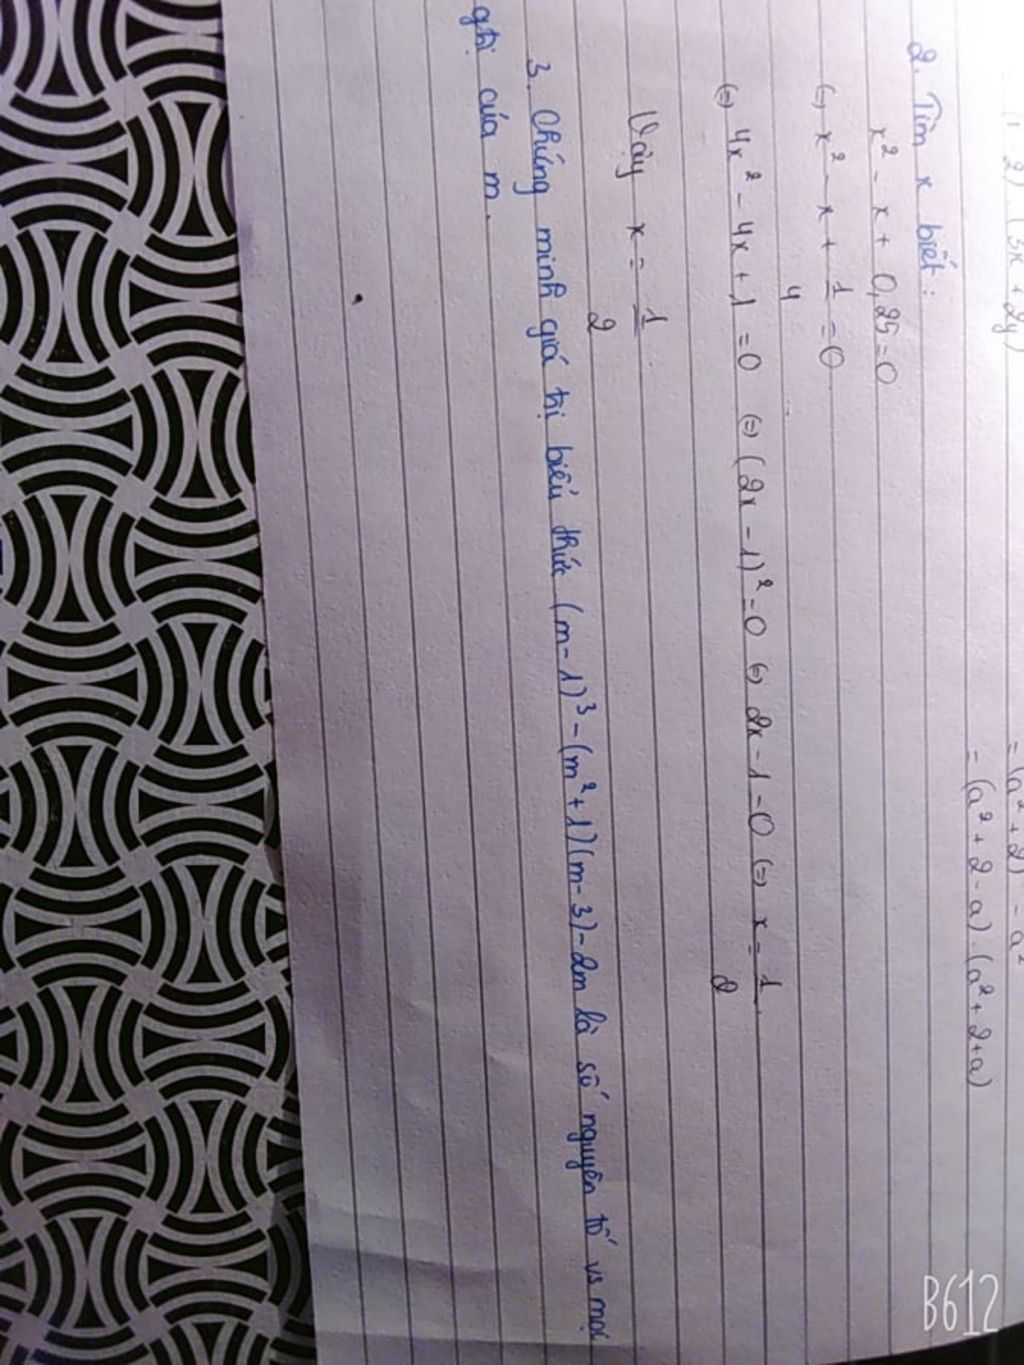 = (a² + 2)² - a²
= (a² + 2 - a) . (a² + 2 + a)
2. Tìm x biết :
x² - x + 0,25 = 0
(=) x² - x + 1/4 = 0
(=) 4x² - 4x + 1 = 0 (=) (2x - 1)² = 0 (=) 2x - 1 = 0 (=) x = 1/2
Vậy x = 1/2
3. Chứng minh giá trị biểu thức (m - 1)³ - (m² + 1)(m - 3) - 2m là số nguyên tố vs mọi
gtrị của m.
B612